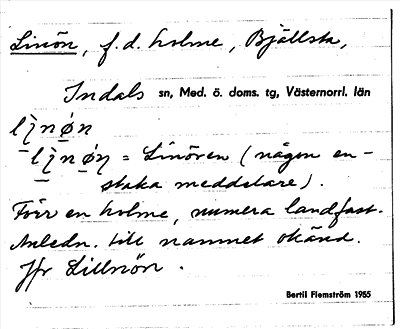 Linön, f.d. holme, Bjällsta,
Indals sn, Med. ö. doms. tg, Västernorrl. län
l̲i̲nø̲n
l̲i̲nø̲ŋ = Linören (någon en-
staka meddelare).
Förr en holme, numera landfast.
Anledn. till namnet okänd.
Jfr Lillnön.
Bertil Flemström 1955